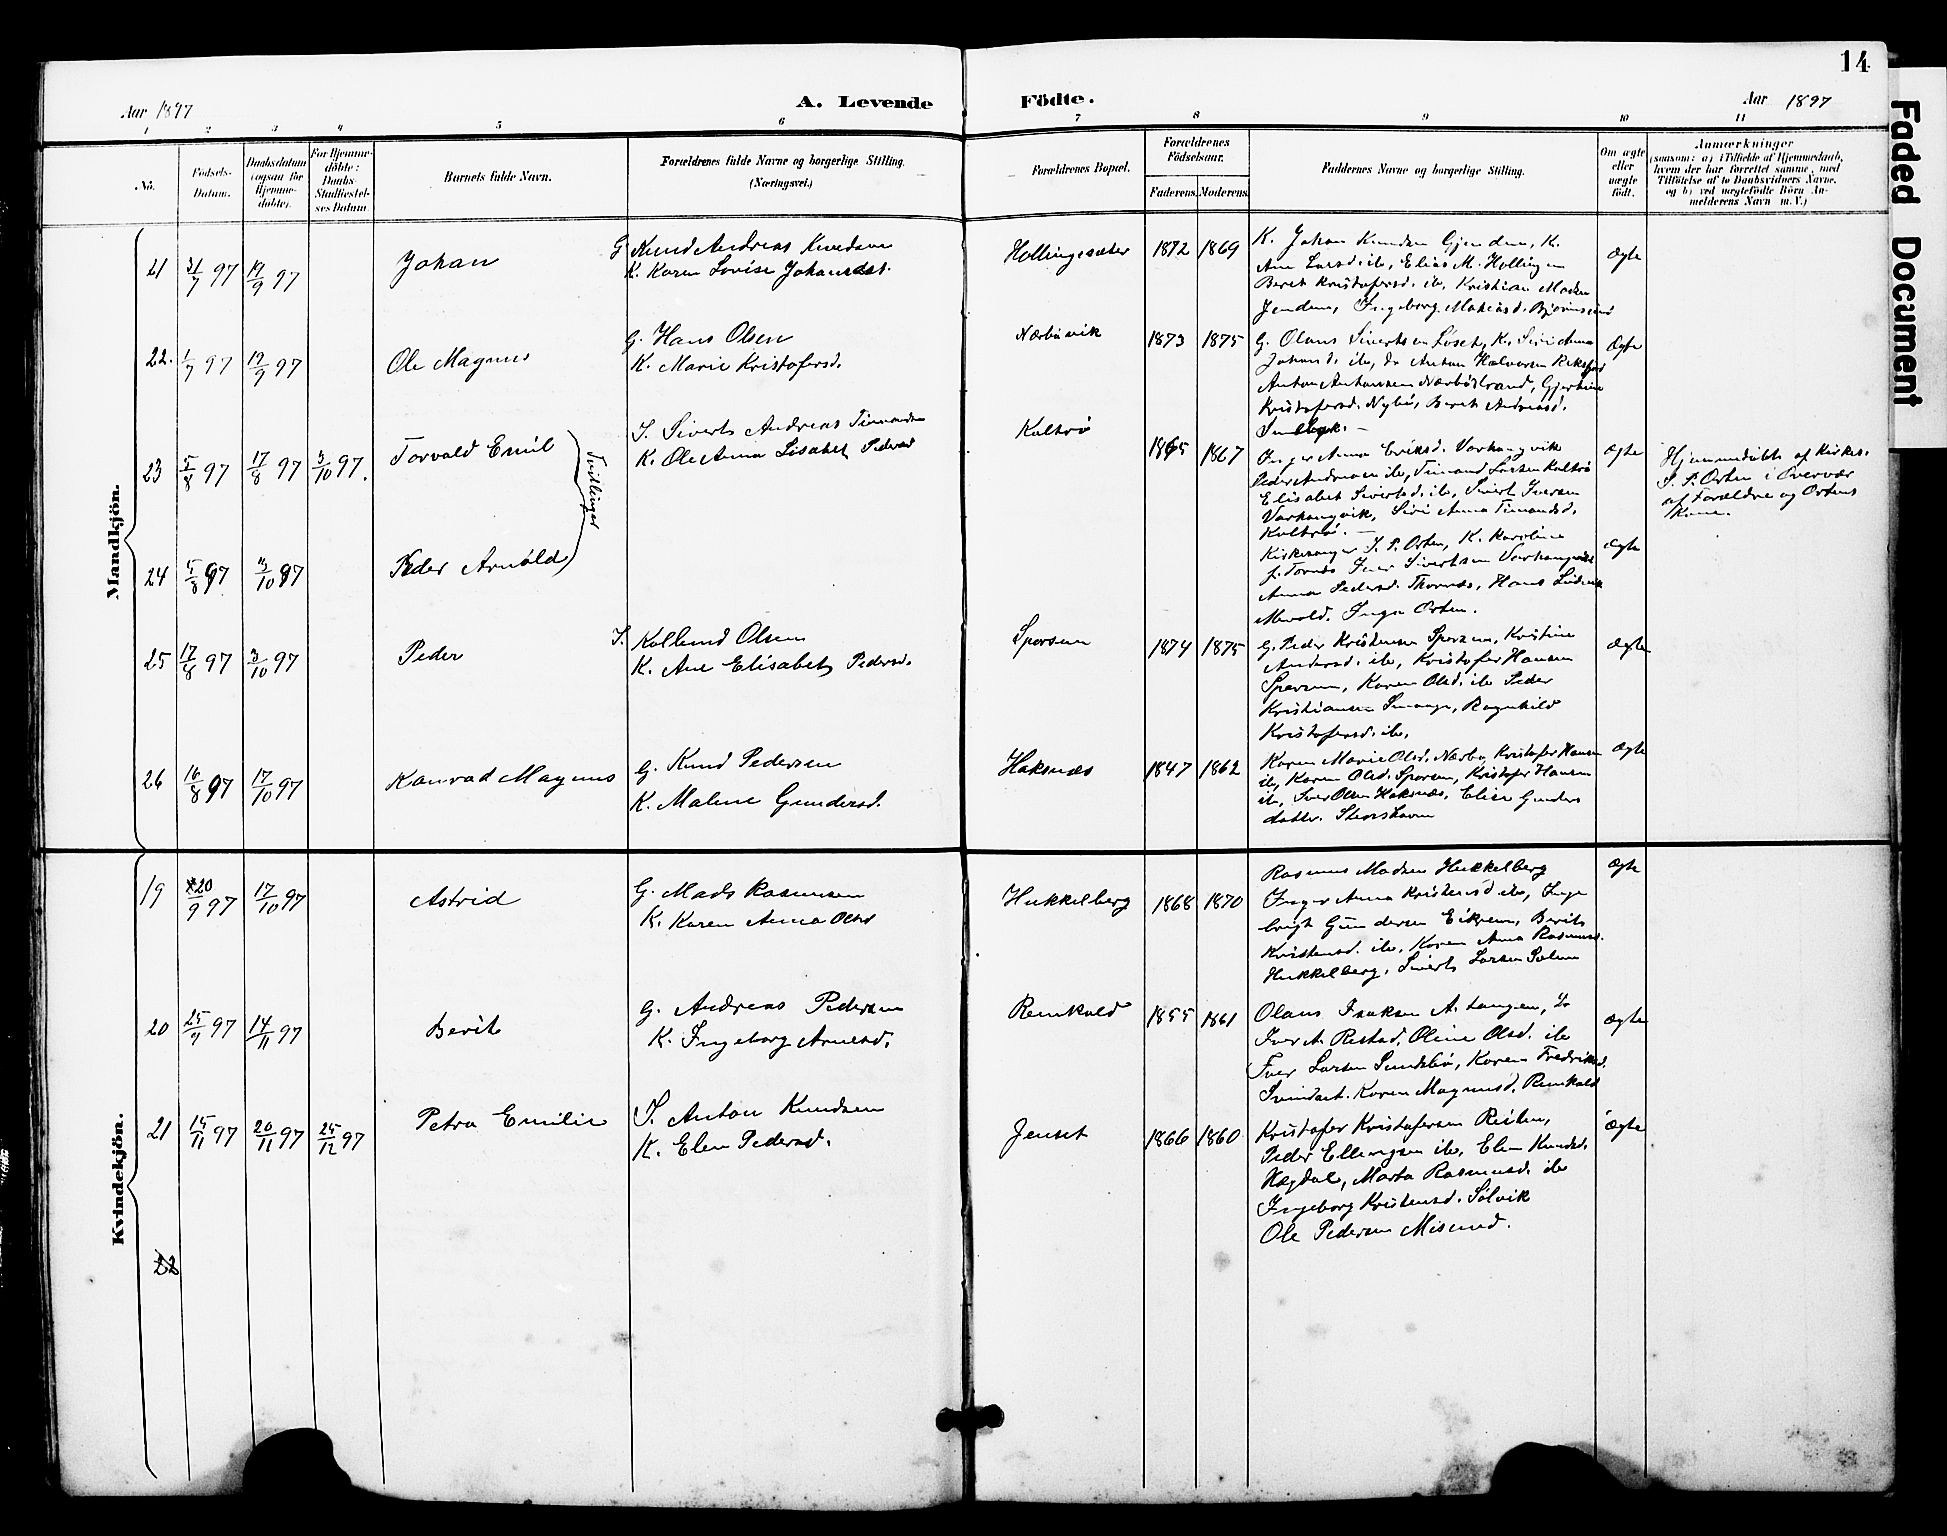 14
Faded Document
Aar 1897
A. Levende Födte.
Aar 1897
1 2 3 4 5 6 7 8 9 10 11
No.
Födsels-Datum.
Daabsdatum (ogsaa for Hjemme-döbte).
For Hjemme-döbte: Daabs-Stadfæstel-ses Datum
Barnets fulde Navn.
Forældrenes fulde Navne og borgerlige Stilling.
(Næringsvei.)
Forældrenes Bopæl.
Forældrenes Födselsaar.
Faderens. Moderens.
Faddernes Navne og borgerlige Stilling.
Om ægte eller uægte födt.
Anmærkninger
(saasom: a) i Tilfælde af Hjemmedaab,
hvem der har forrettet samme, med
Tilföielse af to Daabsvidners Navne,
og b) ved uægtefödte Börn An-
melderens Navn m. V.)
Mandkjön.
21 31/7 97 19/9 97 Johan
G Knud Andreas Knudsen
K. Karen Lovise Johansdat.
Hollingsæter 1872 1869
K. Johan Knudsen Gjendem, K.
Ane Larsd. ib, Elias M. Hollingen
Beret Kristofersd. ib, Kristian Madsen
Jendem, Ingeborg Matiasd. Bjørnsund
Ægte
22. 1/9 97 19/9 97 Ole Magnus
G. Hans Olsen
K. Marie Kristofersd.
Nærbövik 1873 1875
G. Olaus Sivertsen Löset, K. Siri Anna
Johansd. ib, Anton Halvorsen
Anton Antonsen Nærböstrand, Gjertine
Kristofersd. Nybö, Beret Andreasd.
Ægte
23 5/8 97 17/8 97 3/10 97. Torvald Emil
Tvillinger
S. Sivert Andreas Timandsen
K. Ole Anna Lisabet Pedersd
Kaltrö 1865 1867
Inger Anna Eriksd. Varhaugvik
Peder Andreasen ib, Timand Larsen Kaltrö
Elisabet Sivertsd. ib, Sivert Iversen
Varhaugvik, Siri Anna Timandsd.
Kaltrö. —
Ægte
Hjemmedöbt af Kirkes.
S. P. Orten i Overvær
af Forældre og Ortens
Kone.
24 5/8 97 3/10 97 Peder Arnold
Kirkesanger S. P. Orten, K. Karoline
f. Tornes Iver Sivertsen Varhaugvik
Anna Pedersd. Thornes, Hans Ludvik
Inga Orten.
Ægte
25 17/8 97 3/10 97 Peder
S. Kollund Olsen
K. Ane Elisabet Pedersd.
Sporsem 1874 1875
G. Peder Kristensen Sporsem, Kristine
Andersd. ib, Kristofer Hansen
Sporsem, Karen Olsd. ib Peder
Kristiansen Smaage, Ragnhild
Kristofersd. ib.
Ægte
26 16/8 97 17/10 97 Konrad Magnus
G. Knud Pedersen
K. Malene Gundersd.
Haksnæs 1847 1862
Karen Marie Olsd. Nærbö, Kristofer Hansen
ib, Karen Olsd. Sporsem, Kristofer Hansen
ib, Iver Olsen Haksnæs, Elise Gunders
datter. Storshavn
Ægte
Kvindekjön.
19 20/9 97 17/10 97 Astrid
G. Mads Rasmusen
K. Karen Anna Olsd
Hukkelberg 1868 1870
Rasmus Madsen Hukkelberg
Inger Anna Kristensd ib, Inge
brigt Gundersen Eikrem, Berit
Kristensd. ib, Karen Anna Rasmusd.
Hukkelberg, Sivert Larsen Solem
Ægte
20 25/9 97 14/11 97 Berit
G. Andreas Pedersen
K. Ingeborg Arnesd.
Remkald 1855 1861
Olaus Isaksen
Iver A. Restad, Oline Olsd. ib
Iver Larsen Sundsbö, Karen Fredriksd.
Karen Magnusd. Remkald
Ægte
21 15/11 97 20/11 97 25/12 97 Petra Emilie
S. Anton Knudsen
K. Elen Pedersd.
Jenset 1866 1860
Kristofer Kristofersen Reiten,
Peder Ellingsen ib, Elen Knudsd.
Hægdal, Marta Rasmusd. ib
Ingeborg Kristensd. Sølvik
Ole Pedersen Misund.
Ægte
22